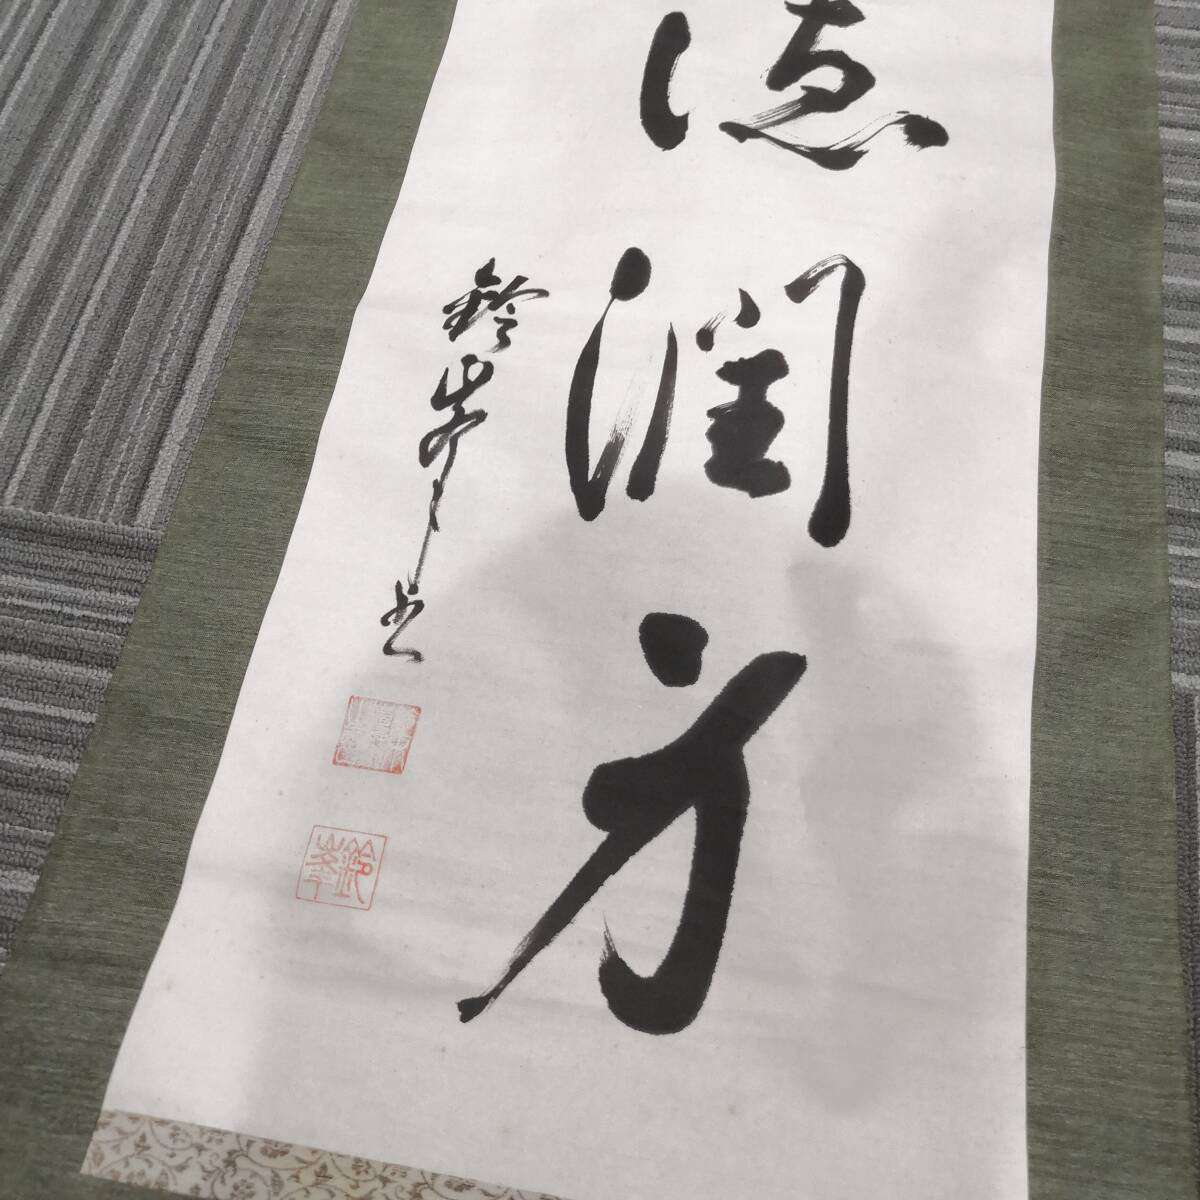 徳潤身
鈴峯書
鈴峯